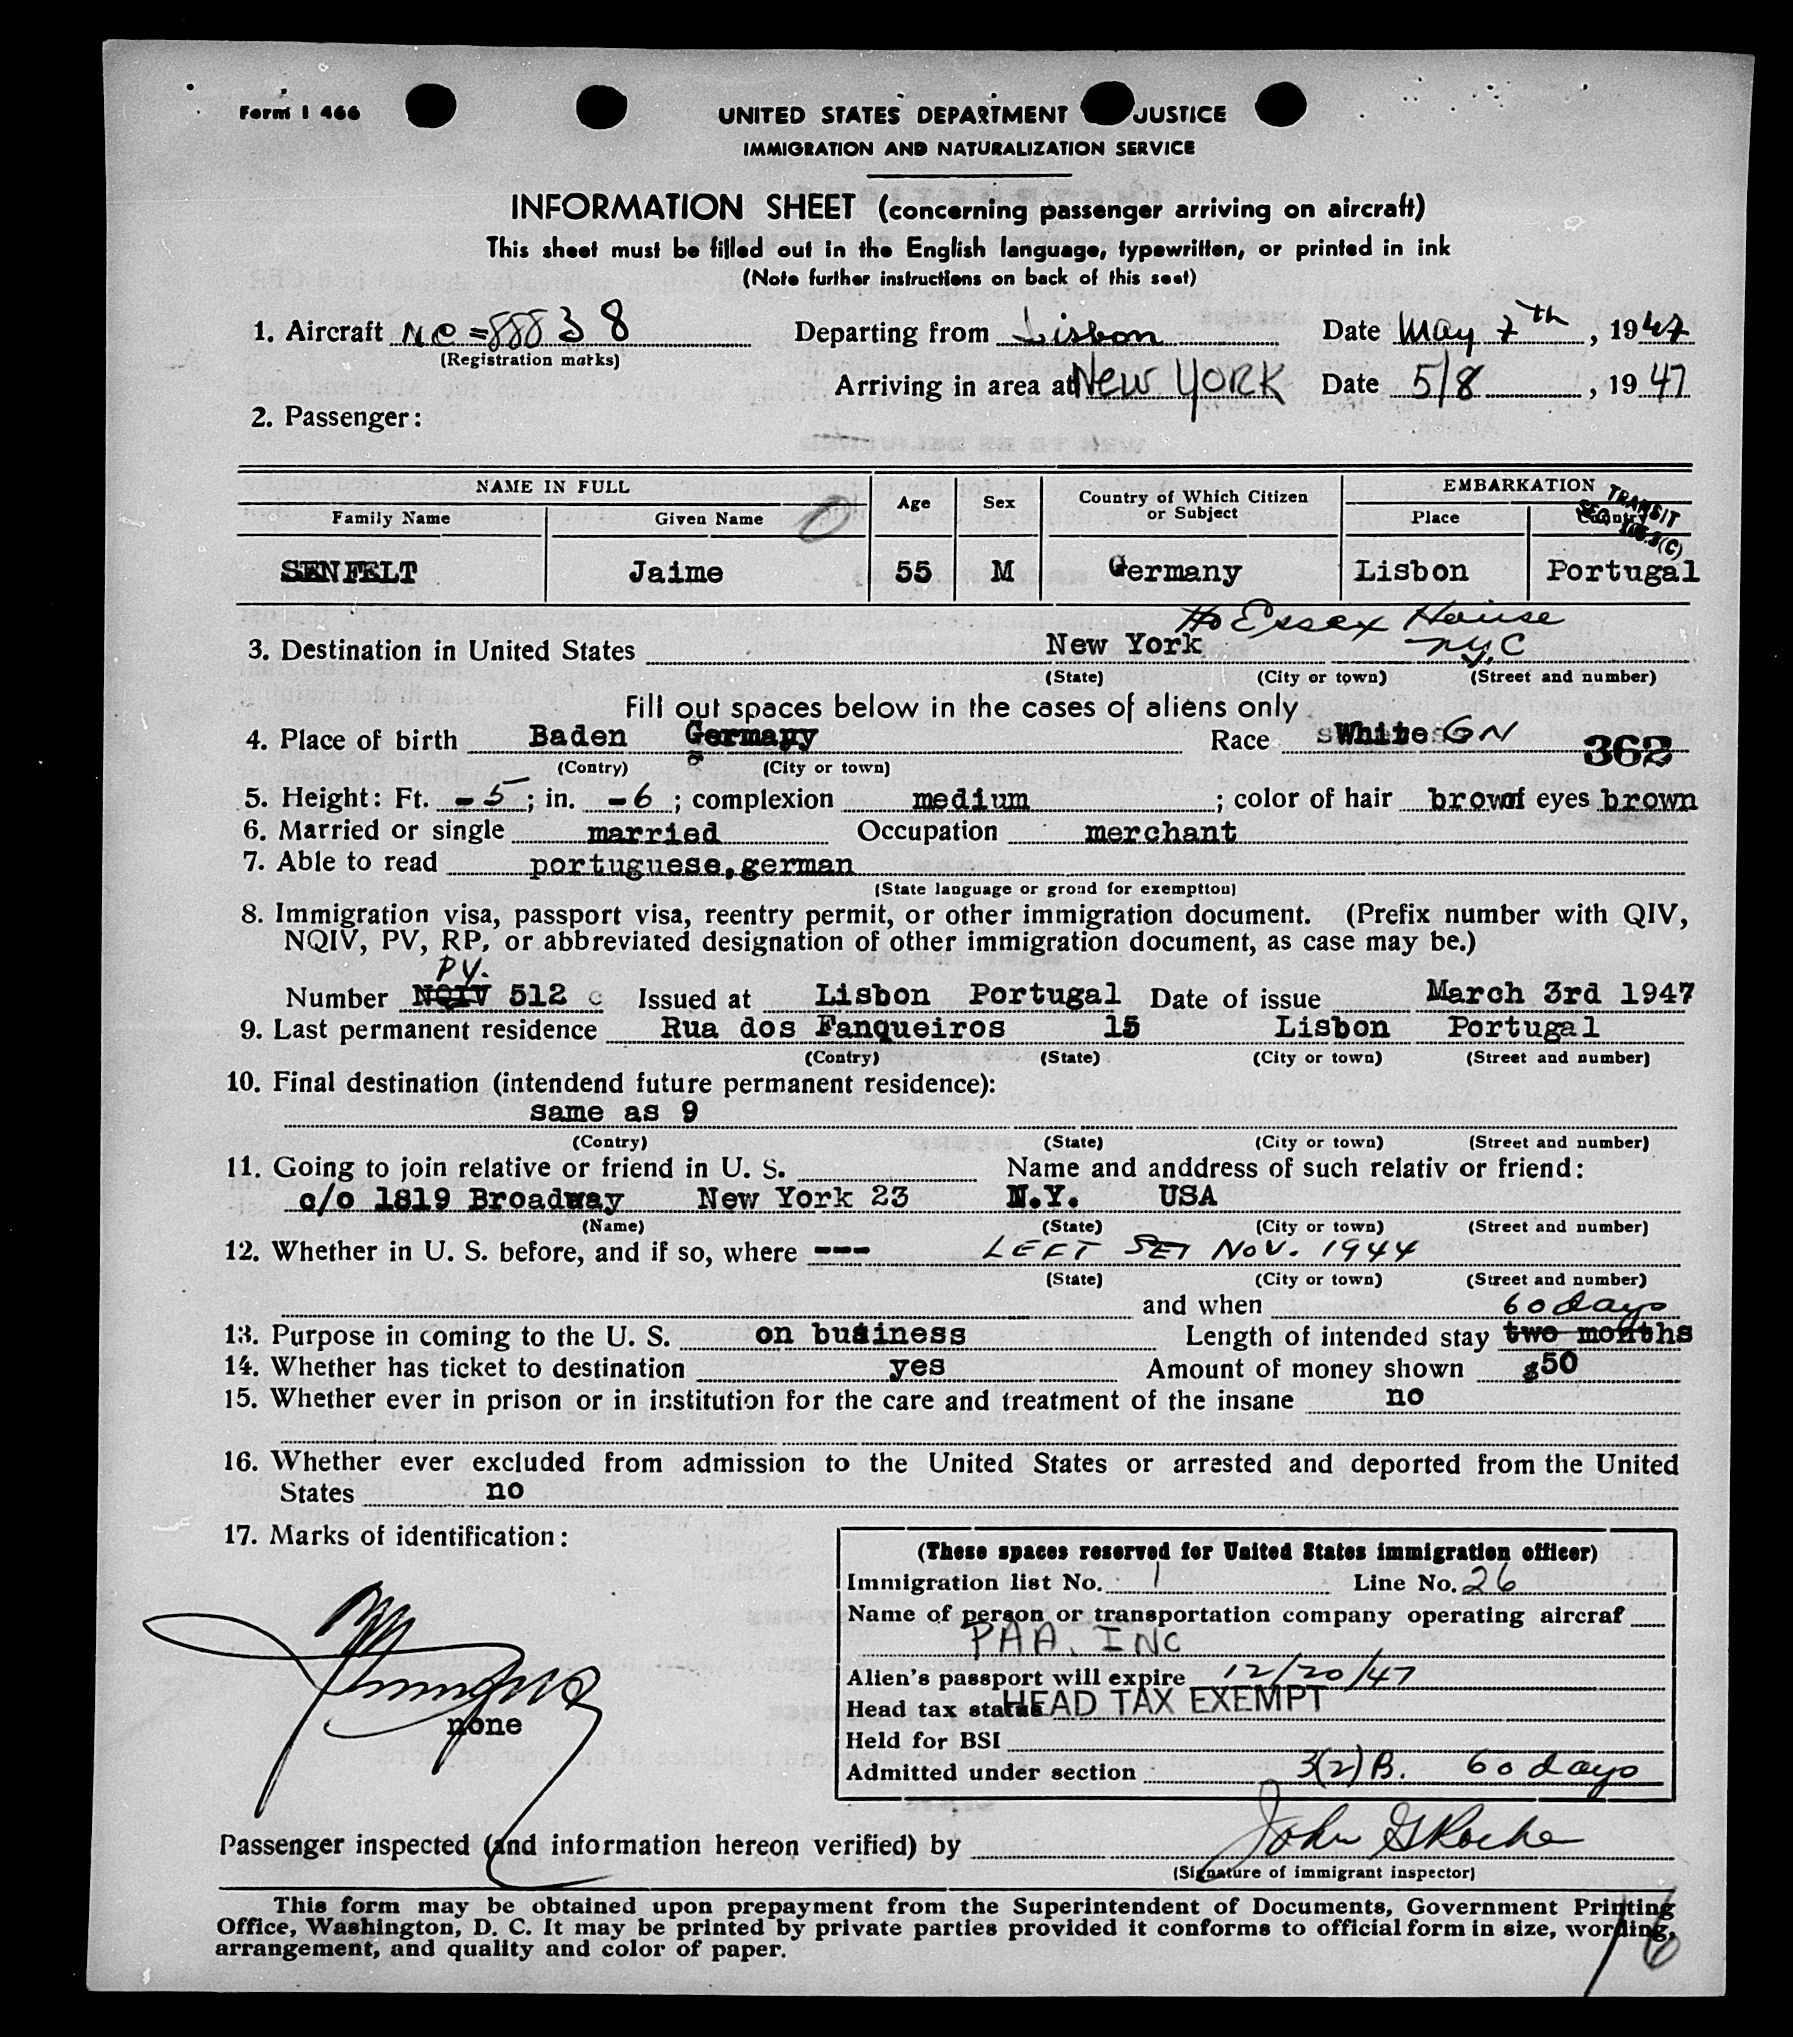 Form I 466
UNITED STATES DEPARTMENT JUSTICE
IMMIGRATION AND NATURALIZATION SERVICE
INFORMATION SHEET (concerning passenger arriving on aircraft)
This sheet must be filled out in the English language, typewritten, or printed in ink
(Note further instructions on back of this seet)
1. Aircraft NC=88838 Departing from Lisbon Date May 7th, 1947
(Registration marks)
Arriving in area at New YORK Date 5/8, 1947
2. Passenger:
NAME IN FULL Age Sex Country of Which Citizen or Subject EMBARKATION
Family Name Given Name Place Country
TRANSIT
SENFELT Jaime 55 M Germany Lisbon Portugal
Essex House
3. Destination in United States New York N.Y.C
(State) (City or town) (Street and number)
Fill out spaces below in the cases of aliens only
4. Place of birth Baden Germany Race White GN 362
(Contry) (City or town)
5. Height: Ft. -5; in. -6; complexion medium; color of hair brown of eyes brown
6. Married or single married Occupation merchant
7. Able to read portuguese,german
(State language or groud for exemptiou)
8. Immigration visa, passport visa, reentry permit, or other immigration document. (Prefix number with QIV,
NQIV, PV, RP, or abbreviated designation of other immigration document, as case may be.)
PV.
Number NQIV 512 c Issued at Lisbon Portugal Date of issue March 3rd 1947
9. Last permanent residence Rua dos Fanqueiros 15 Lisbon Portugal
(Contry) (State) (City or town) (Street and number)
10. Final destination (intendend future permanent residence):
same as 9
(Contry) (State) (City or town) (Street and number)
11. Going to join relative or friend in U. S. Name and anddress of such relativ or friend:
c/o 1819 Broadway New York 23 N.Y. USA
(Name) (State) (City or town) (Street and number)
12. Whether in U. S. before, and if so, where --- LEFT Nov. 1944
(State) (City or town) (Street and number)
and when 60 days
13. Purpose in coming to the U. S. on business Length of intended stay two months
14. Whether has ticket to destination yes Amount of money shown $50
15. Whether ever in prison or in institution for the care and treatment of the insane no
16. Whether ever excluded from admission to the United States or arrested and deported from the United
States no
17. Marks of identification:
none
(These spaces reserved for United States immigration officer)
Immigration list No. 1 Line No. 26
Name of person or transportation company operating aircraf
PAA. INC
Alien's passport will expire 12/20/47
Head tax status HEAD TAX EXEMPT
Held for BSI
Admitted under section 3(2)B. 60 days
Passenger inspected (and information hereon verified) by John G Roche
(Signature of immigrant inspector)
This form may be obtained upon prepayment from the Superintendent of Documents, Government Printing
Office, Washington, D. C. It may be printed by private parties provided it conforms to official form in size, wording,
arrangement, and quality and color of paper.